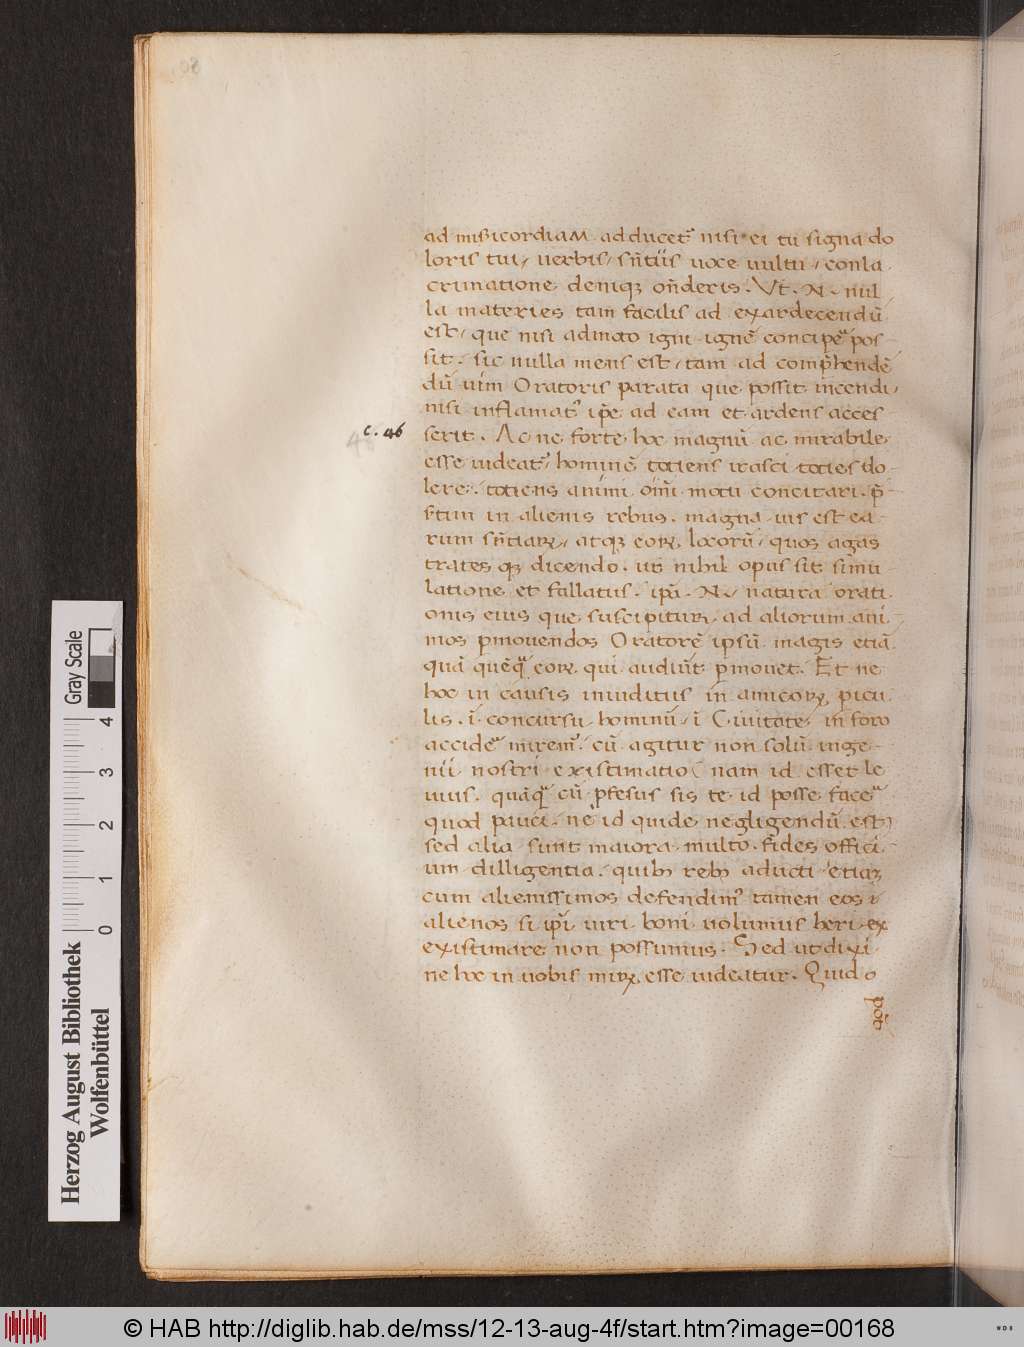 08
ad misicordiam adducet᷑ nisi ei tu signa do
loris tui, uerbis, sn̄tiis uoce uultu, conla
crimatione deniqȝ on̄deris. Vt. N. nul
la materies tam facilis ad exardecendū
est, que nisi admoto igni ignē concipe᷑ pos
sit. sic nulla mens est, tam ad comp̄hendē
dū uim Oratoris parata que possit incendi,
nisi inflamat᷑ ip̄e ad eam et ardens acces
serit. Ac ne forte hoc magnū ac mirabile
c. 46
esse uideat᷑, hominē totiens irasci toties do
lere. totiens animi om̄i motu concitari. p̄
s̄tim in alienis rebus. magna uis est ea
rum sn̄tiaꝝ, atqȝ eoꝝ locorū, quos agas
trates qȝ dicendo. ut nihil opus sit simu
latione et fallatus. ip̄a. N. natura orati
onis eius que suscipitur, ad aliorum ani
mos p̄mouendos Oratorē ipsū magis etiā
quā quēq᷑ eoꝝ qui audiūt p̄mouet. Et ne
hoc in causis inuditus in amicoꝝ picu
lis. ī concursu hominū, ī Ciuitate in foro
accide᷑ mirem᷑. cū agitur non solū inge
nii nostri existimatio (nam id esset le
uius. quāq᷑ cū p̄fesus sis te id posse face᷑
quod pauci. ne id quide negligendū est)
sed alia sunt maiora multo. fides offici
um dilligentia. quibȝ rebȝ aducti etiaȝ
cum alienissimos defendim᷑ tamen eos
alienos si ip̄i uiri boni uolumus heri ex
existimare non possumus. Sed ut dixi
ne hoc in uobis miꝝ esse uideatur. Quid
pot̄
Gray Scale
0 1 2 3 4
Herzog August Bibliothek
Wolfenbüttel
© HAB http://diglib.hab.de/mss/12-13-aug-4f/start.htm?image=00168